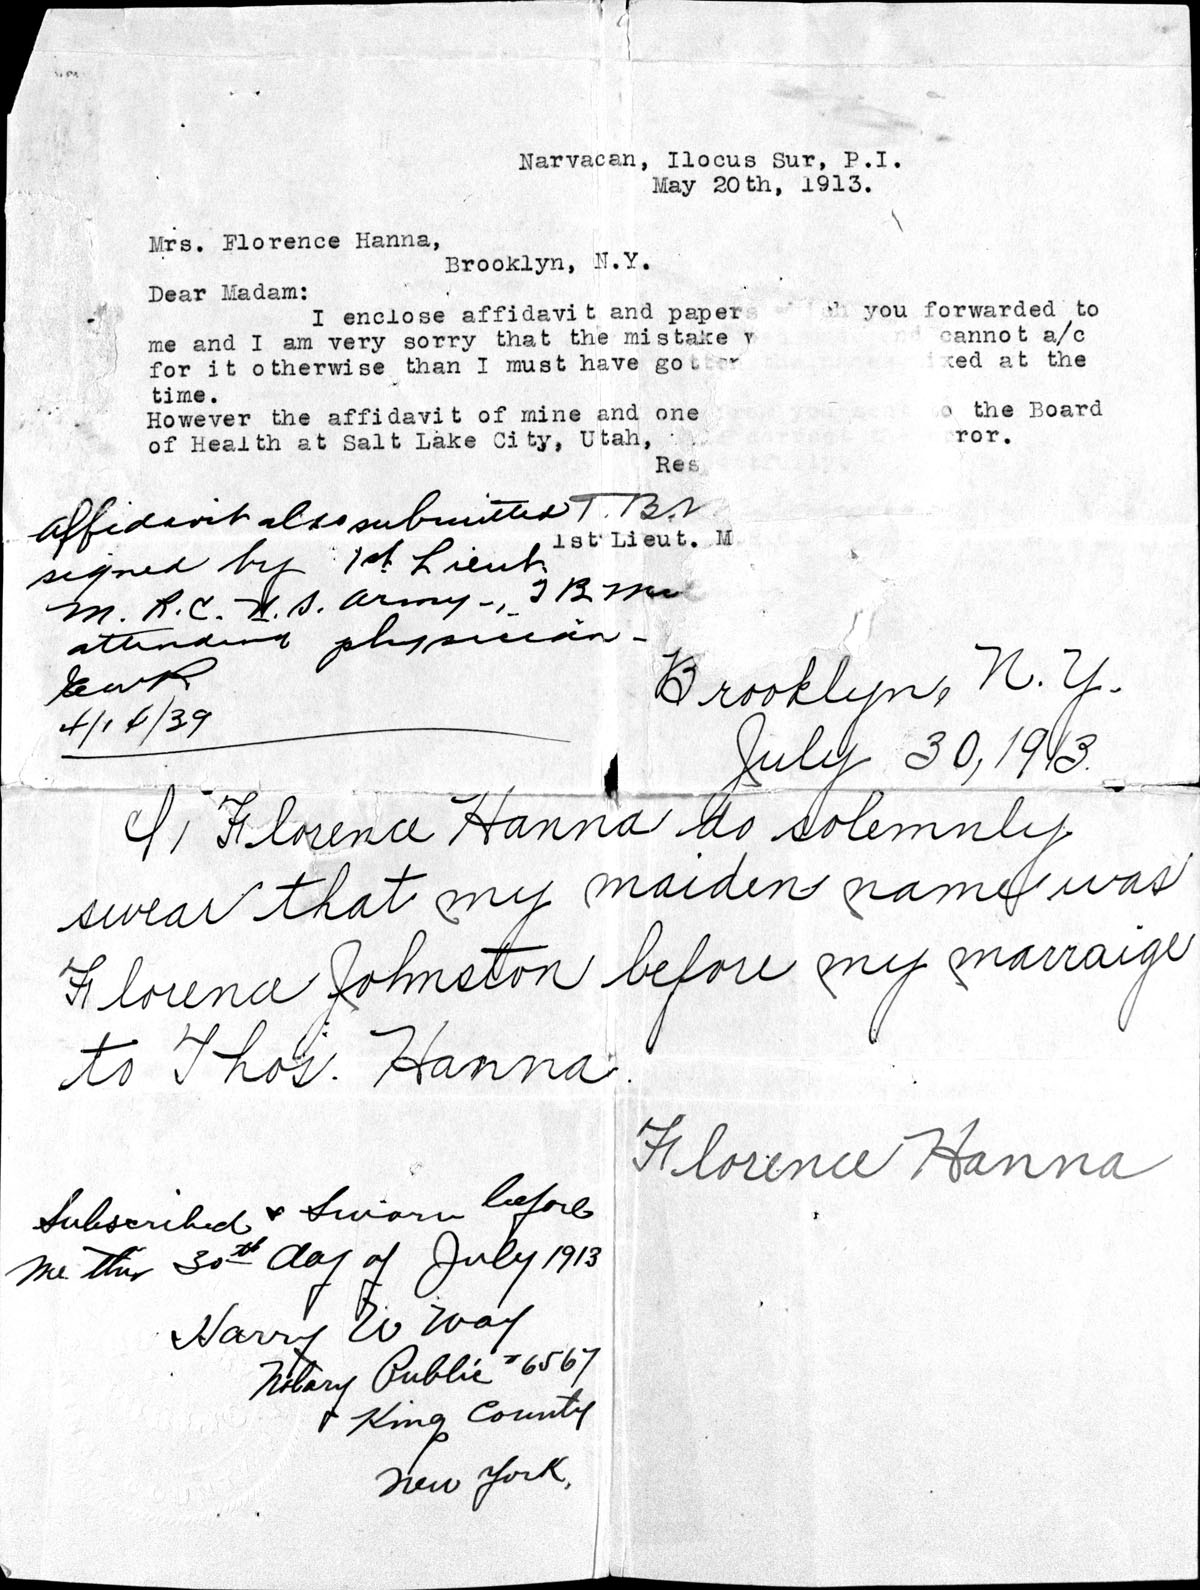 Narvacan, Ilocus Sur, P.I.
May 20th, 1913.
Mrs. Florence Hanna,
Brooklyn, N.Y.
Dear Madam:
I enclose affidavit and papers you forwarded to
me and I am very sorry that the mistake cannot a/c
for it otherwise than I must have gotten at the
time.
However the affidavit of mine and one the Board
of Health at Salt Lake City, Utah,
affidavit also submitted T. B.
1st Lieut. M
signed by 1st Lieut.
M. R. C. U. S. Army -, T B
attending physician -
4/14/39
Brooklyn, N. Y.
July 30, 1913.
I, Florence Hanna do solemnly
swear that my maiden name was
Florence Johnston before my marraige
to Thos. Hanna.
Florence Hanna
Subscribed & Sworn before
me this 30th day of July 1913
Harry W Way
Notary Public #6567
King County
New York.